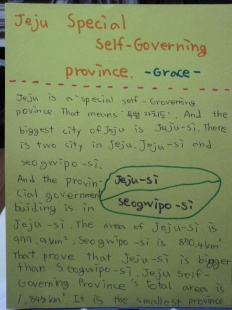 Jeju Special
Self-Governing
province. -Grace-
Jeju is a special self-Groverning
povince That means 특별 자치도. And the
biggest city of Jeju is Jeju-si. There
is two city in Jeju. Jeju-si and
seogwipo-si.
And the provin-
cial government
building is in
Jeju-si
Seogwipo-si
Jeju-si. The area of Jeju-si is
km². Seogwipo-si is 870.4 km²
That prove that Jeju-si is bigger
than Seogwipo-si. Jeju Self-
Governing Province's total area is
1,849 km². It is the smallest province